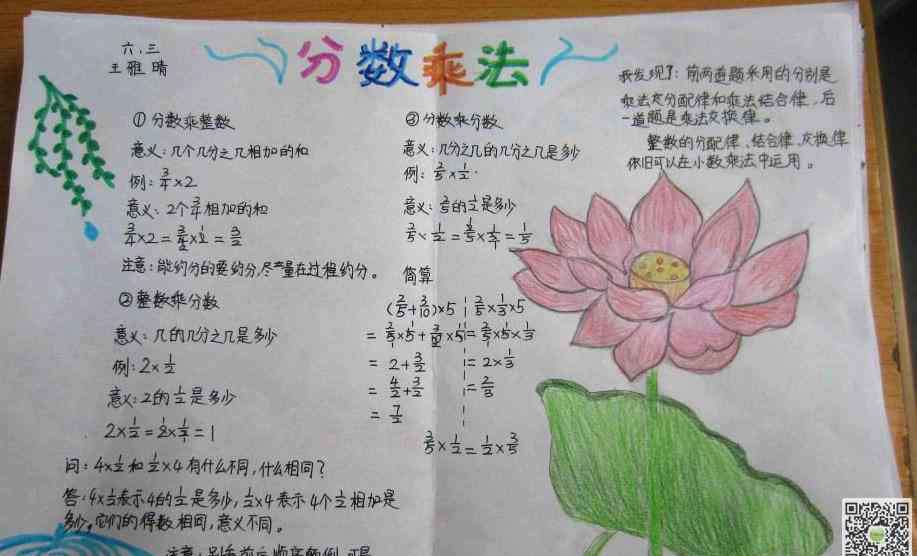 六.三
王雅晴
分数乘法
① 分数乘整数
意义:几个几分之几相加的和
例:3/4×2
意义:2个3/4相加的和
3/4×2=3/4×2=3/2
注意:能约分的要约分,尽量在过程约分。
② 整数乘分数
意义:几的几分之几是多少
例:2×1/2
意义:2的1/2是多少
2×1/2=2×1/2=1
问:4×1/2和1/2×4有什么不同,什么相同?
答:4×1/2表示4的1/2是多少,1/2×4表示4个1/2相加是
多少,它们的得数相同,意义不同。
③ 分数乘分数
意义:几分之几的几分之几是多少
例:2/5×1/2
意义:2/5的1/2是多少
2/5×1/2=2/5×1/2=1/5
简算
(2/5+3/10)×5
=2/5×5+3/10×5
=2+3/2
=4/2+3/2
=7/2
2/5×1/3×5
=2/5×5×1/3
=2×1/3
=2/3
3/5×1/2=1/2×3/5
我发现了:前两道题采用的分别是
乘法分配律和乘法结合律,后
一道题是乘法交换律。
整数的分配律、结合律、交换律
依旧可以在小数乘法中运用。